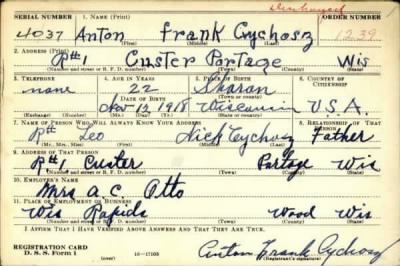 Discharged
SERIAL NUMBER 1. NAME (Print) ORDER NUMBER
4037 Anton Frank Cychosz 1239
(First) (Middle) (Last)
2. ADDRESS (Print)
R#1 Custer Portage Wis
(Number and street or R. F. D. number) (Town) (County) (State)
3. TELEPHONE 4. AGE IN YEARS 5. PLACE OF BIRTH 6. COUNTRY OF CITIZENSHIP
none 22 Sharon
DATE OF BIRTH (Town or county)
12 1918 Wisconsin U.S.A.
(Exchange) (Number) (Mo.) (Day) (Yr.) (State or country)
7. NAME OF PERSON WHO WILL ALWAYS KNOW YOUR ADDRESS 8. RELATIONSHIP OF THAT PERSON
Leo Nick Cychosz Father
(Mr., Mrs., Miss) (First) (Middle) (Last)
9. ADDRESS OF THAT PERSON
R#1 Custer Portage Wis
(Number and street or R. F. D. number) (Town) (County) (State)
10. EMPLOYER'S NAME
Mrs A.C. Otto
11. PLACE OF EMPLOYMENT OR BUSINESS
Wis Rapids Wood Wis
(Number and street or R. F. D. number) (Town) (County) (State)
I AFFIRM THAT I HAVE VERIFIED ABOVE ANSWERS AND THAT THEY ARE TRUE.
REGISTRATION CARD
D. S. S. Form 1 16-17105 Anton Frank Cychosz
(Registrant's signature)